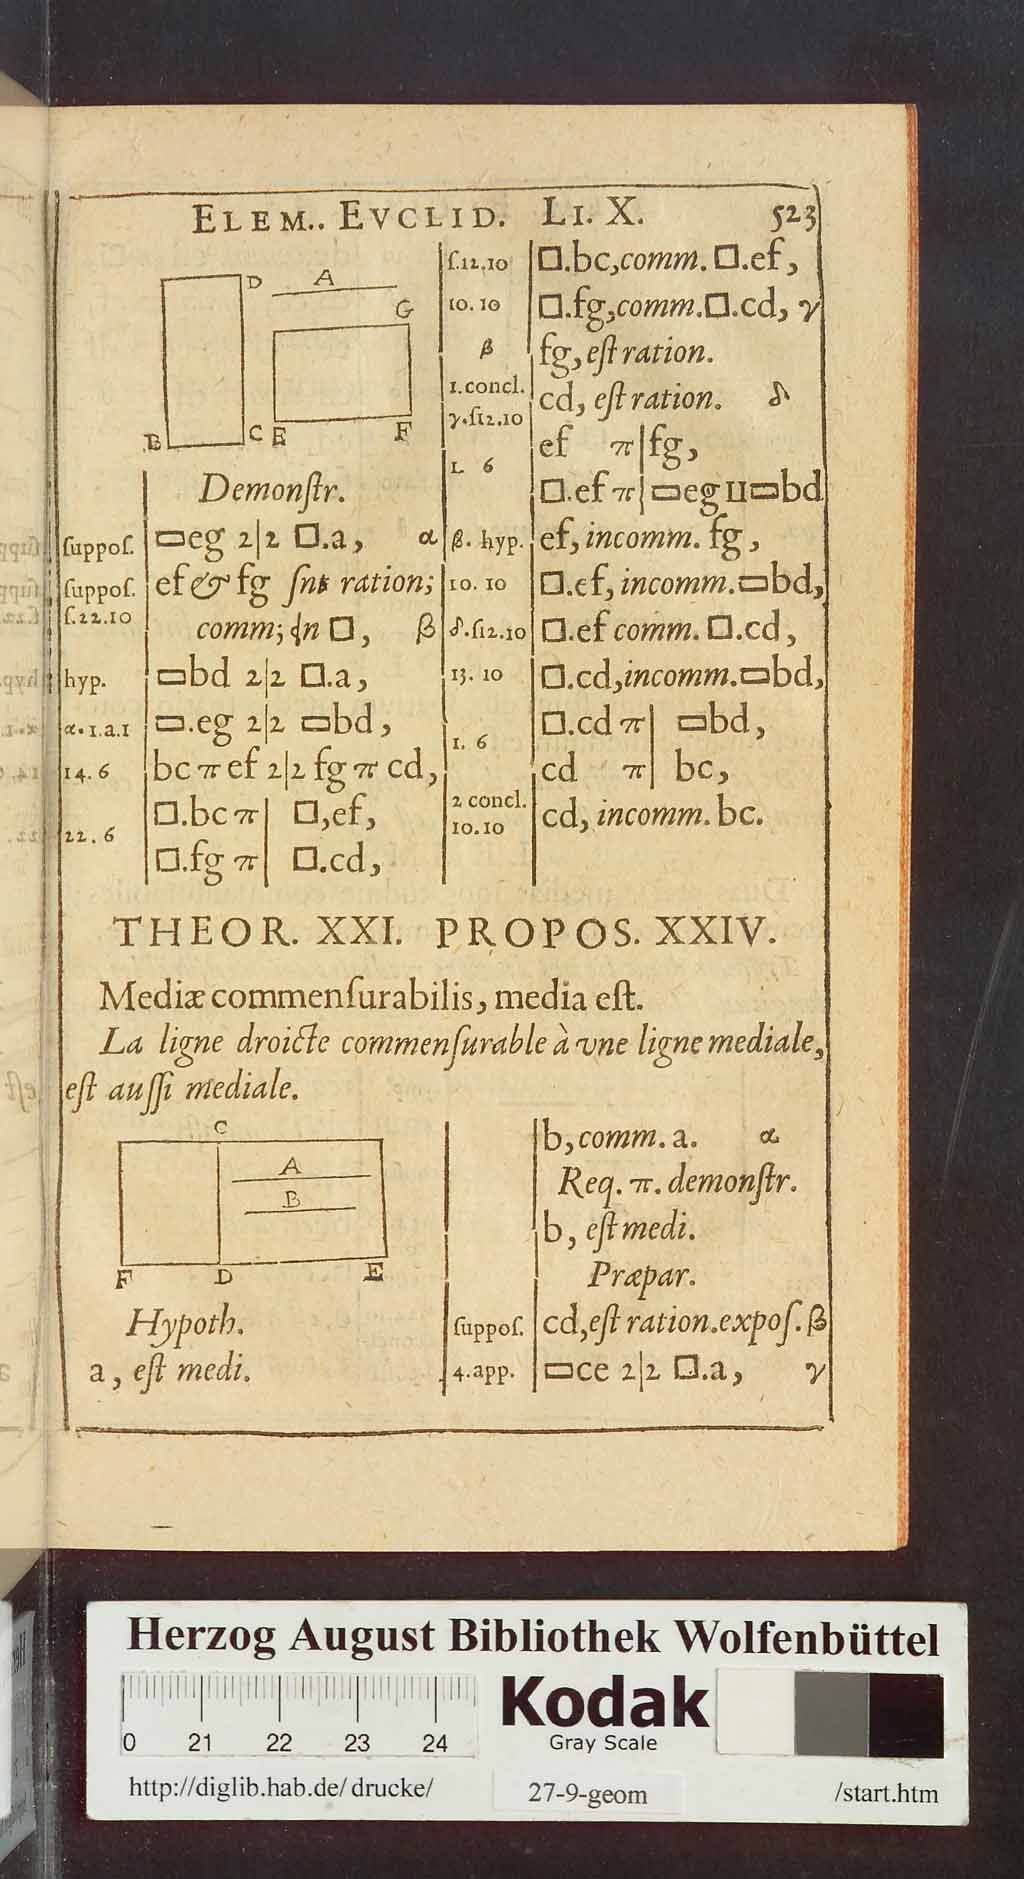 ELEM.. EVCLID. LI. X. 523
D A
G
B C E F
Demonſtr.
ſuppoſ. ▭eg 2|2 □.a, α
ſuppoſ. ef & fg ſnt ration;
ſ.22.10 comm; ɖn □, β
hyp. ▭bd 2|2 □.a,
α.1.a.1 ▭.eg 2|2 ▭bd,
14.6 bc π ef 2|2 fg π cd,
□.bc π| □,ef,
22.6
□.fg π| □.cd,
ſ.12.10 □.bc,comm. □.ef,
10.10 □.fg,comm.□.cd, γ
β fg, eſt ration.
1.concl. cd, eſt ration. δ
γ.ſ12.10 ef π|fg,
1. 6 □.ef π| ▭eg II ▭bd
β. hyp. ef, incomm. fg,
10. 10 □.ef, incomm.▭bd,
δ.ſ12.10 □.ef comm. □.cd,
13. 10 □.cd,incomm.▭bd,
□.cd π| ▭bd,
1. 6 cd π| bc,
2 concl. cd, incomm. bc.
10.10
THEOR. XXI. PROPOS. XXIV.
Mediæ commenſurabilis, media eſt.
La ligne droicte commenſurable à vne ligne mediale,
eſt auſſi mediale.
C
A
B
F D E
Hypoth.
a, eſt medi.
b, comm. a. α
Req. π. demonſtr.
b, eſt medi.
Præpar.
ſuppoſ. cd,eſt ration.expoſ. β
4.app. ▭ce 2|2 □.a, γ
Herzog August Bibliothek Wolfenbüttel
Kodak
Gray Scale
0 21 22 23 24
http://diglib.hab.de/drucke/ 27-9-geom /start.htm